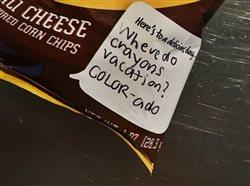 ILI CHEESE
ORED CORN CHIPS
Here's to a delicious day
Where do
crayons
vacation?
COLOR-ado